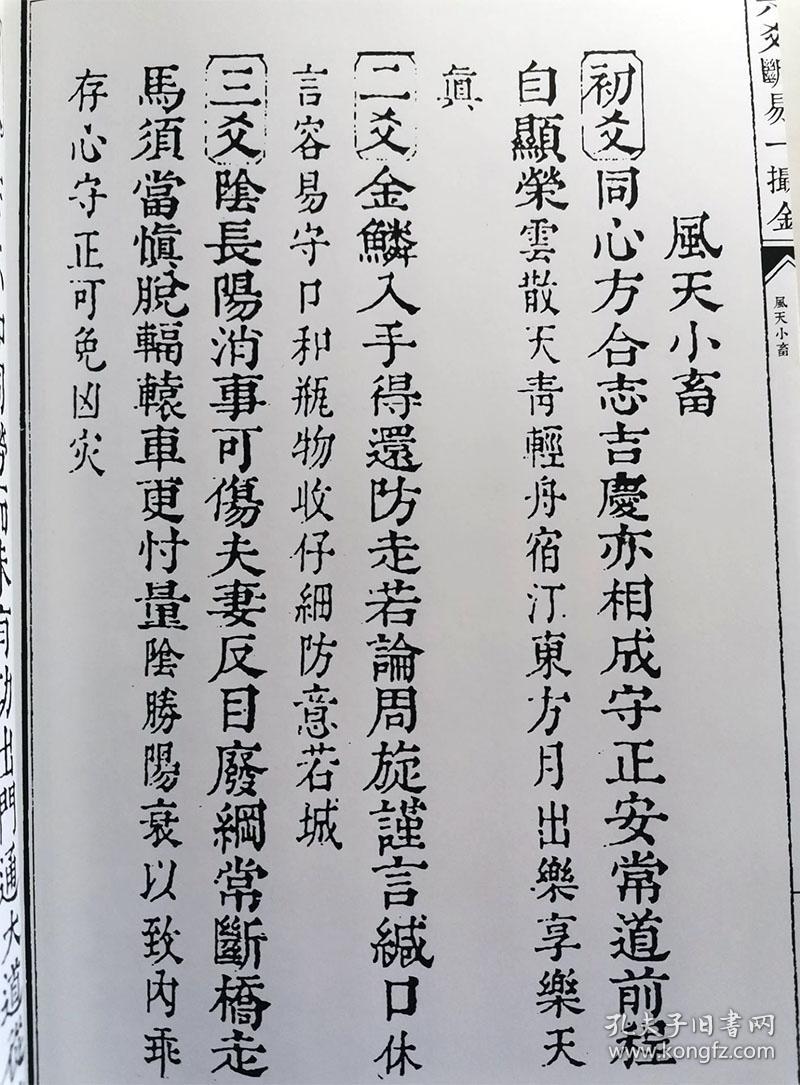 六爻斷易一撮金
風天小畜
風天小畜
初爻同心方合志吉慶亦相成守正安常道前程
自顯榮雲散天青輕舟宿汀東方月出樂享樂天
眞
二爻金鱗入手得還防走若論周旋謹言緘口休
言容易守口和瓶物收仔細防意若城
三爻陰長陽消事可傷夫妻反目廢綱常斷橋走
馬須當愼脫輻轅車更忖量陰勝陽衰以致內乖
存心守正可免凶灾
有功出門通大道
孔夫子旧书网
www.kongfz.com